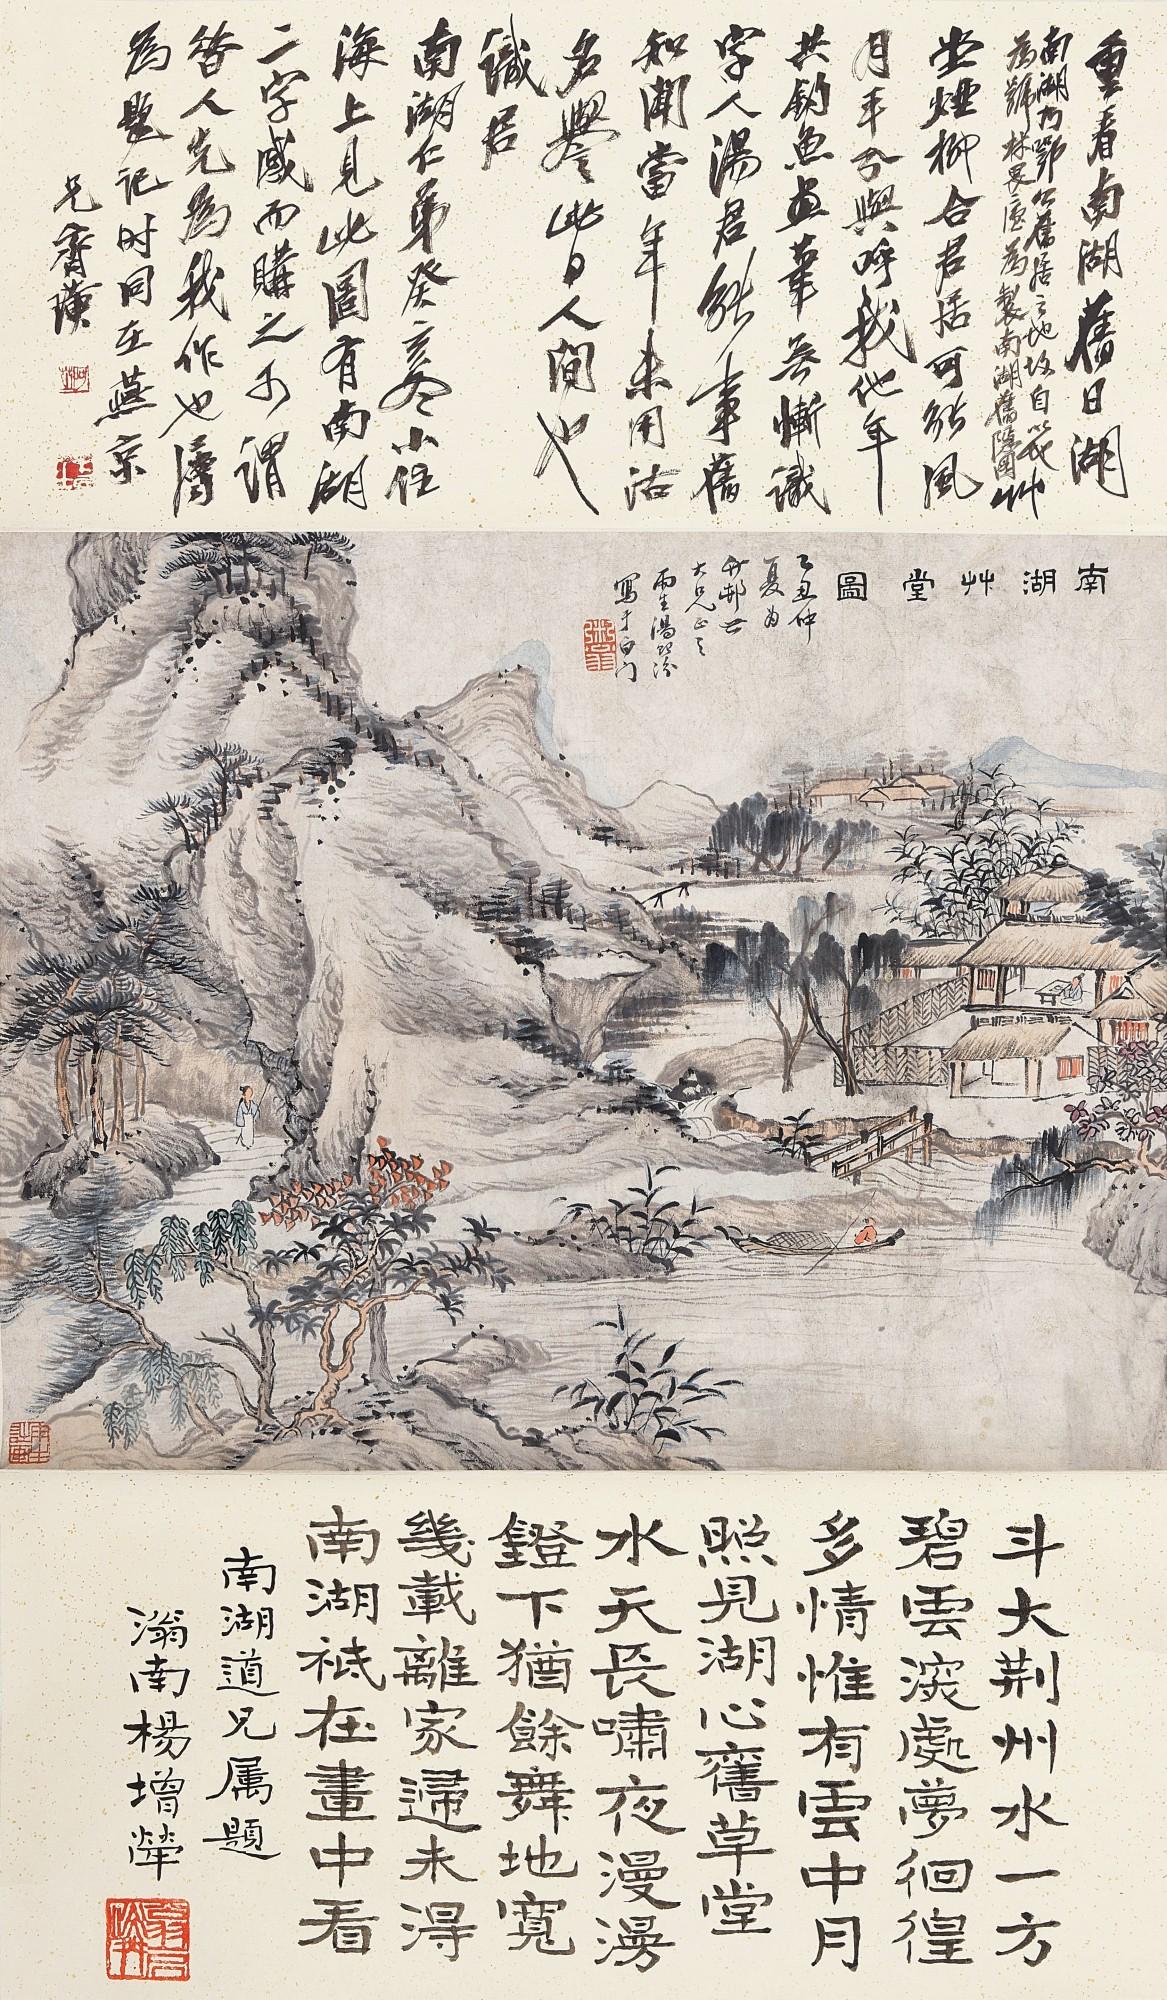 重看南湖舊日湖
南湖乃鄂公舊居之地故自以
為號林畏廬為製南湖舊隱圖
坐煙柳合君居可能風
月平分與呼我他年
共釣魚畫筆無慚識
字人湯君能事舊
知聞當年未用沽
名譽此日人間也
識君
南湖仁弟癸亥冬小住
海上見此圖有南湖
二字感而購之可謂
昔人先為我作也屬
為題記時同在燕京
兄齊璜
南湖艸堂圖
乙丑仲
夏為
大兄正之
雨生湯貽汾
寫于白門
斗大荆州水一方
碧雲深處夢徊徨
多情惟有雲中月
照見湖心舊草堂
水天長嘯夜漫漫
鐙下猶餘舞地寬
幾載離家歸未得
南湖祇在畫中看
南湖道兄属題
滃南楊增犖